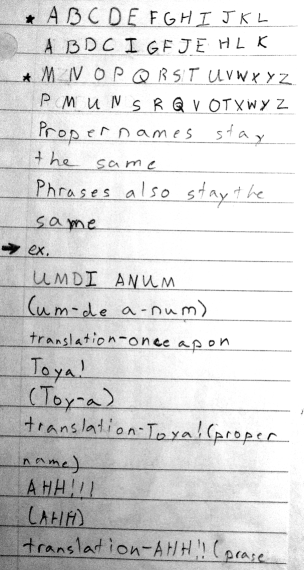 ★ A B C D E F G H I J K L
A B D C I G F J E H L K
★ M N O P Q R S T U V W X Y Z
P M U N S R Q V O T X W Y Z
Proper names stay
the same
Phrases also stay the
same
→ ex.
UMDI ANUM
(um-de a-num)
translation-once apon
Toya!
(Toy-a)
translation-Toya!(proper
name)
AHH!!!
(AHH)
translation-AHH!!(prase